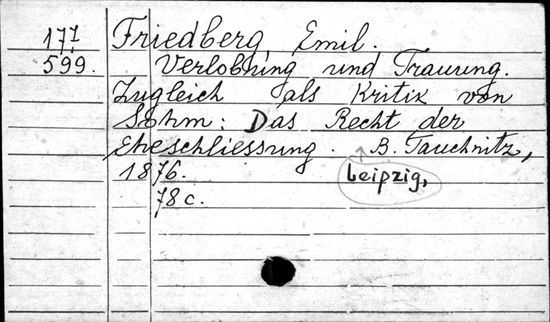 177
599.
Friedberg, Emil.
Verlobung und Trauung.
Zugleich als Kritik von
Sohm: Das Recht der
Eheschliessung. B. Tauchnitz,
Leipzig,
1876.
78 c.